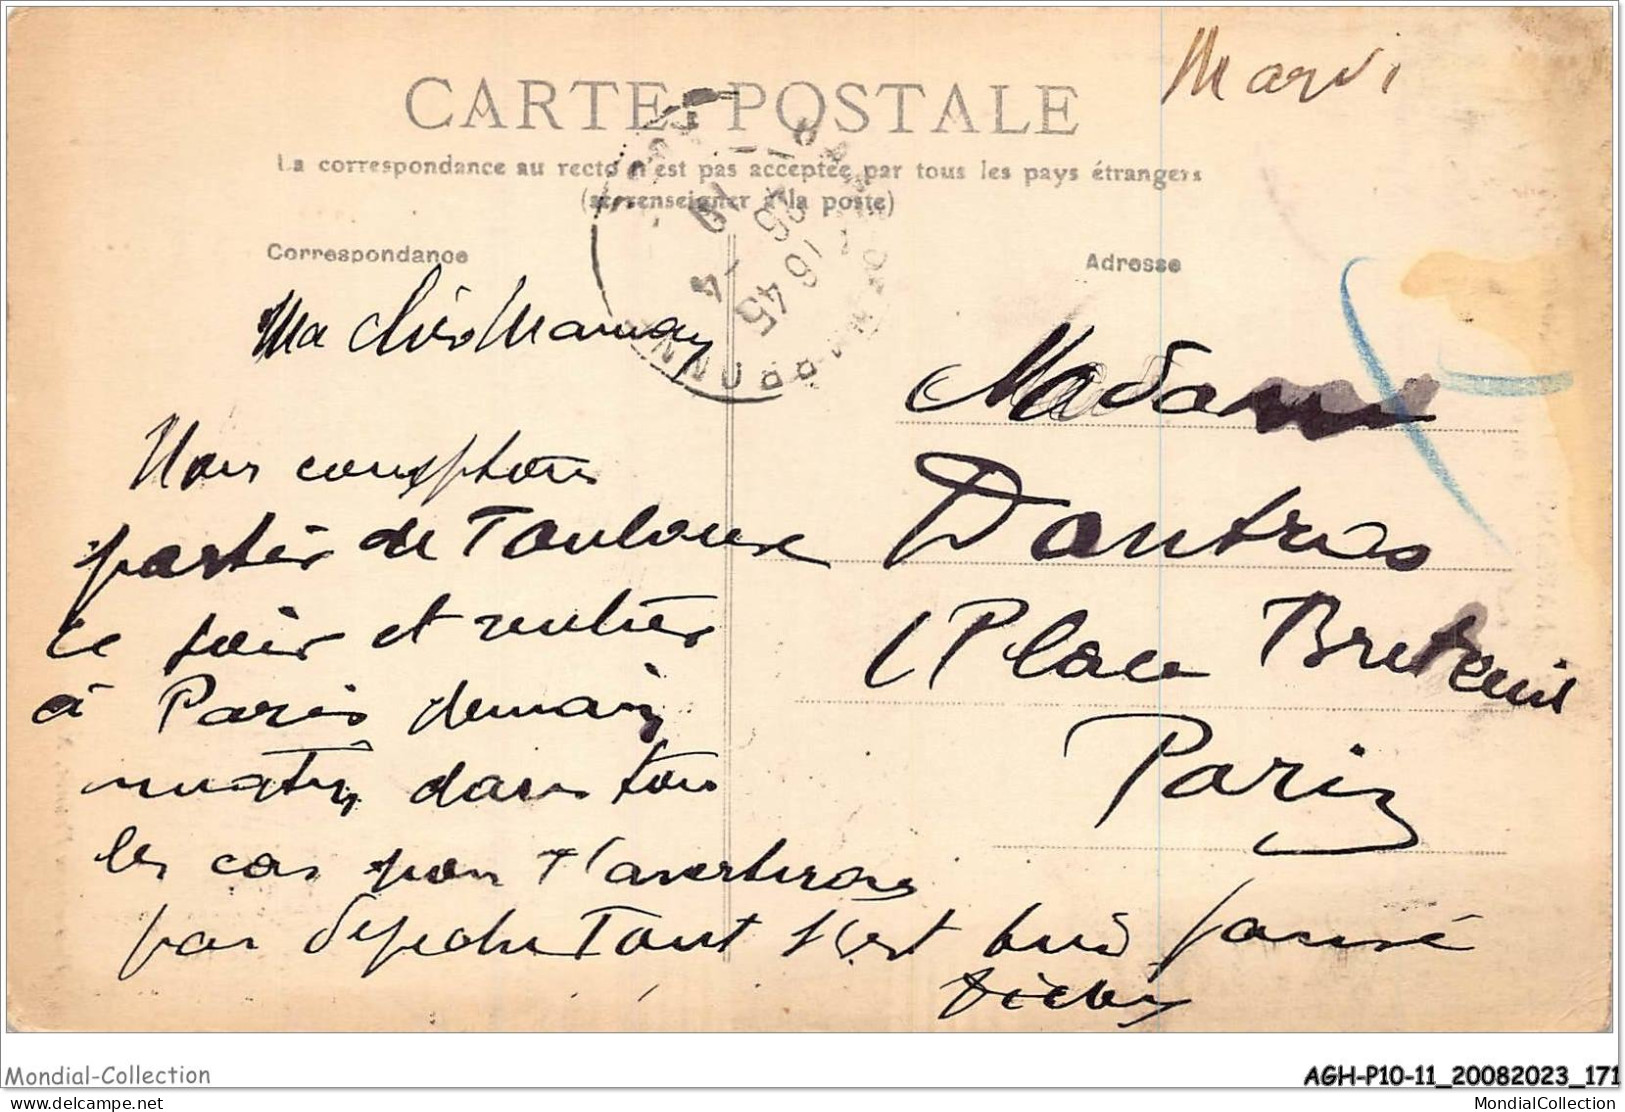 Mardi
CARTE POSTALE
La correspondance au recto n'est pas acceptée par tous les pays étrangers
(se renseigner à la poste)
Correspondance
Adresse
16 45
Ma chère Maman
Nous comptons
partir de Toulouse
ce soir et rentrer
à Paris demain
matin, dans tous
les cas nous t'avertirons
par dépêche Tout s'est bien passé
Madame
Dautres
1 Place Breteuil
Paris
Mondial-Collection
AGH-P10-11_20082023_171
delcampe.net
MondialCollection